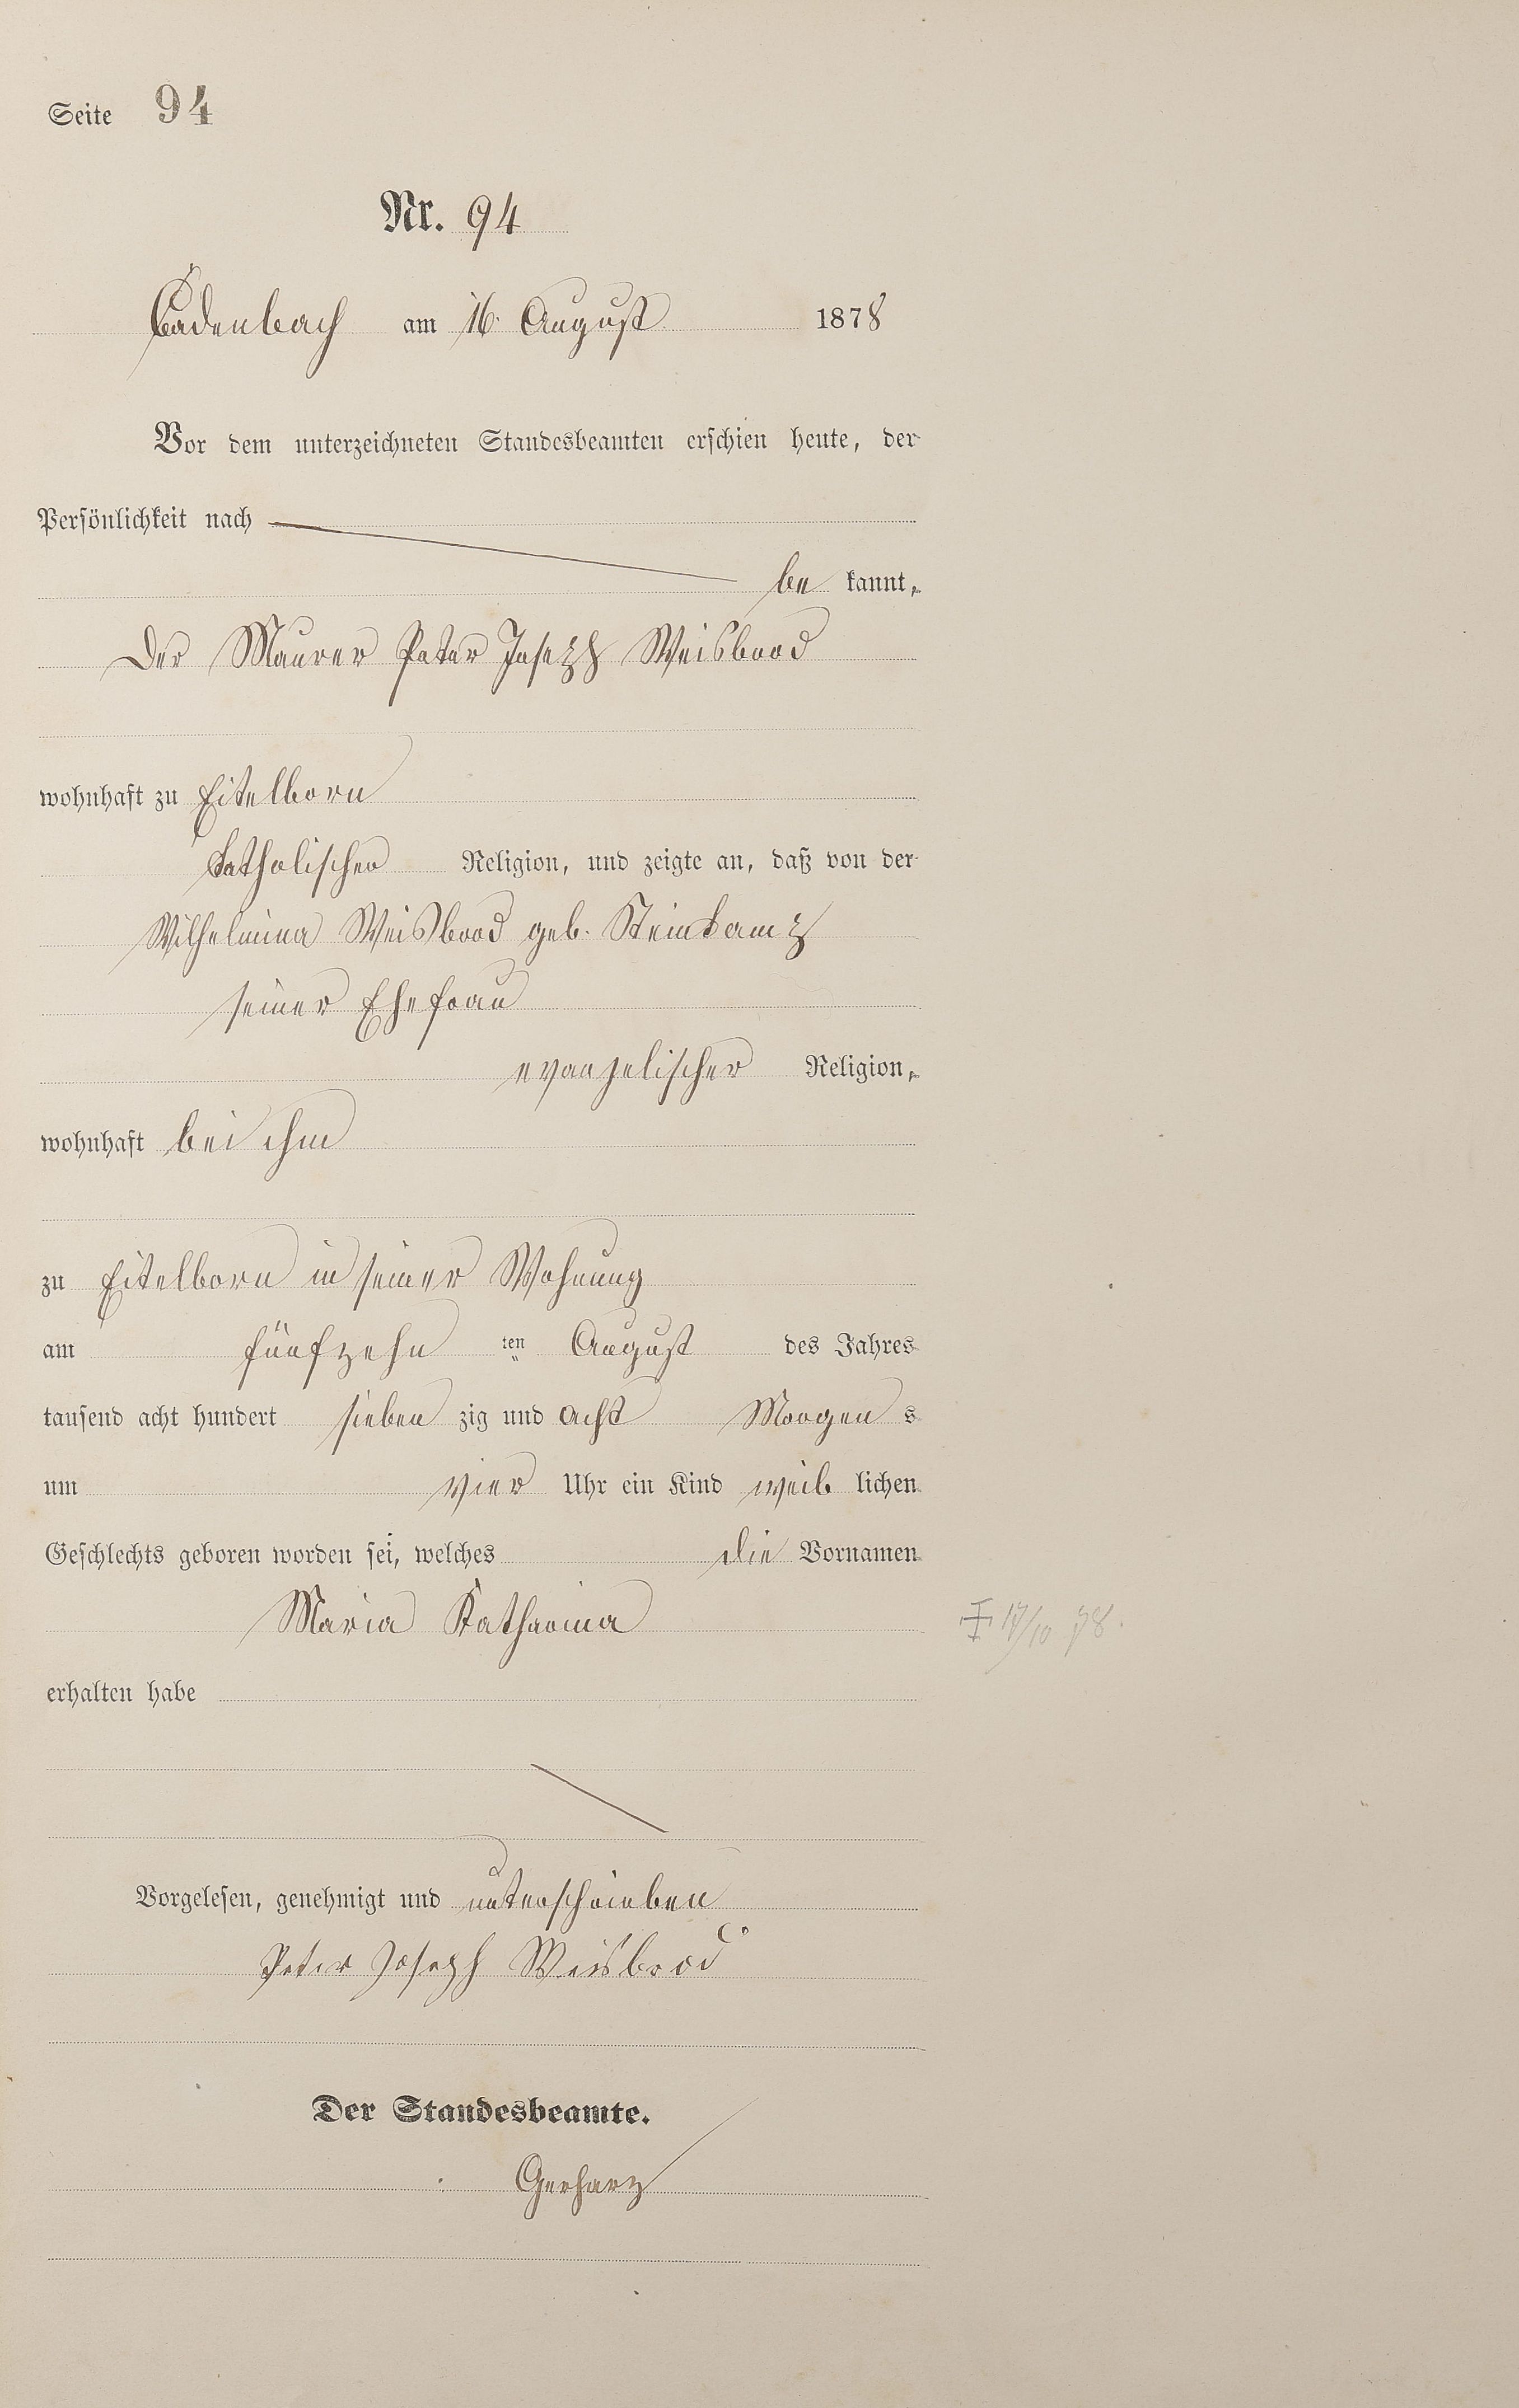 Seite 94
Nr. 94
Cadenbach am 16. August 1878
Vor dem unterzeichneten Standesbeamten erschien heute, der
Persönlichkeit nach
be kannt,
Der Maurer Peter Joseph Weisbrod
wohnhaft zu Eitelborn
katholischer Religion, und zeigte an, daß von der
Wilhelmina Weisbrod geb. Steinkamp
seiner Ehefrau
evangelischer Religion,
wohnhaft bei ihm
zu Eitelborn in seiner Wohnung
am fünfzehn ten August des Jahres
tausend acht hundert sieben zig und acht Morgen s
um vier Uhr ein Kind weib lichen
Geschlechts geboren worden sei, welches die Vornamen
Maria Katharina
† 17/10 78.
erhalten habe
Vorgelesen, genehmigt und unterschrieben
Peter Joseph Weisbrod
Der Standesbeamte.
Gerharz